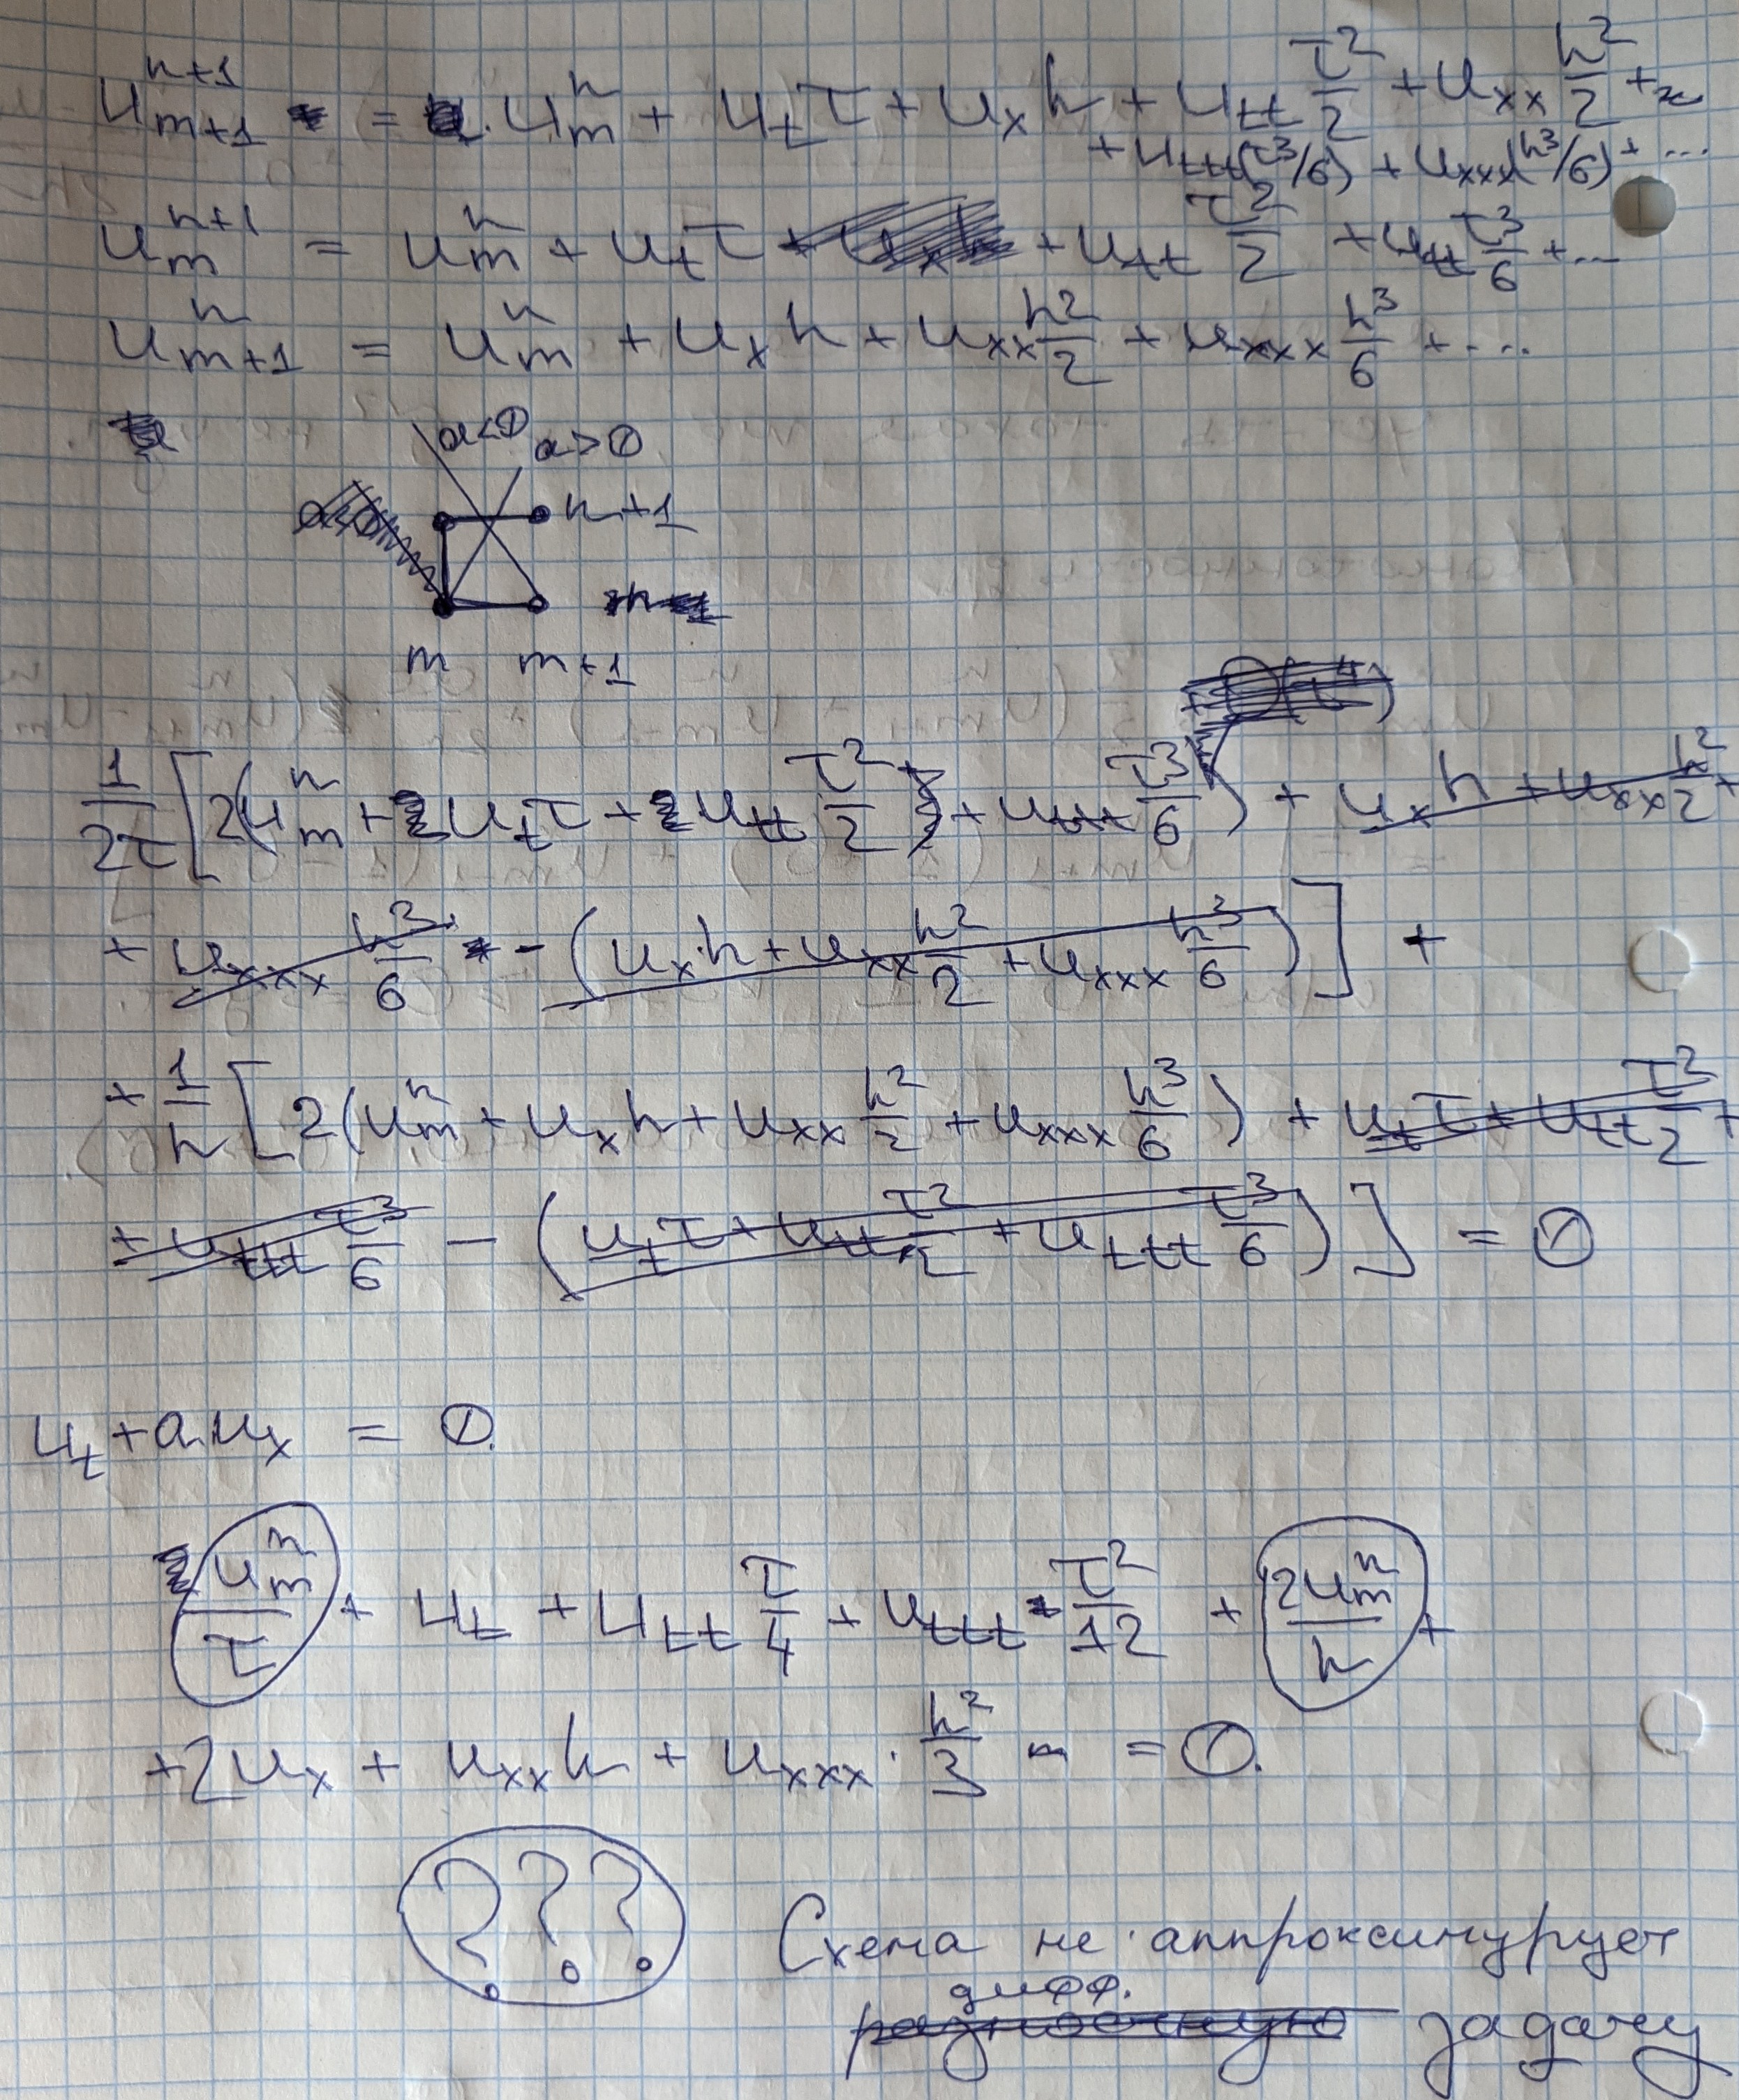 u_{m+1}^{n+1} = u_m^n + u_t τ + u_x h + u_{tt} τ²/2 + u_{xx} h²/2 +
+ u_{ttt}(τ³/6) + u_{xxx}(h³/6) + ...
u_m^{n+1} = u_m^n + u_t τ + u_{tt} τ²/2 + u_{ttt} τ³/6 + ...
u_{m+1}^n = u_m^n + u_x h + u_{xx} h²/2 + u_{xxx} h³/6 + ....
a<0 a>0
n+1
m m+1
1/2τ [2(u_m^n + u_t τ + u_{tt} τ²/2 + u_{ttt} τ³/6) + u_x h + u_{xx} h²/2 +
+ u_{xxx} h³/6 - (u_x·h + u_{xx} h²/2 + u_{xxx} h³/6)] +
+ 1/h [2(u_m^n + u_x h + u_{xx} h²/2 + u_{xxx} h³/6) + u_t τ + u_{tt} τ²/2 +
+ u_{ttt} τ³/6 - (u_t τ + u_{tt} τ²/2 + u_{ttt} τ³/6)] = 0
u_t + a u_x = 0.
u_m^n/τ + u_t + u_{tt} τ/4 + u_{ttt} τ²/12 + 2u_m^n/h +
+2u_x + u_{xx} h + u_{xxx} · h²/3 = 0.
???
Схема не аппроксимирует
дифф.
разностную задачу